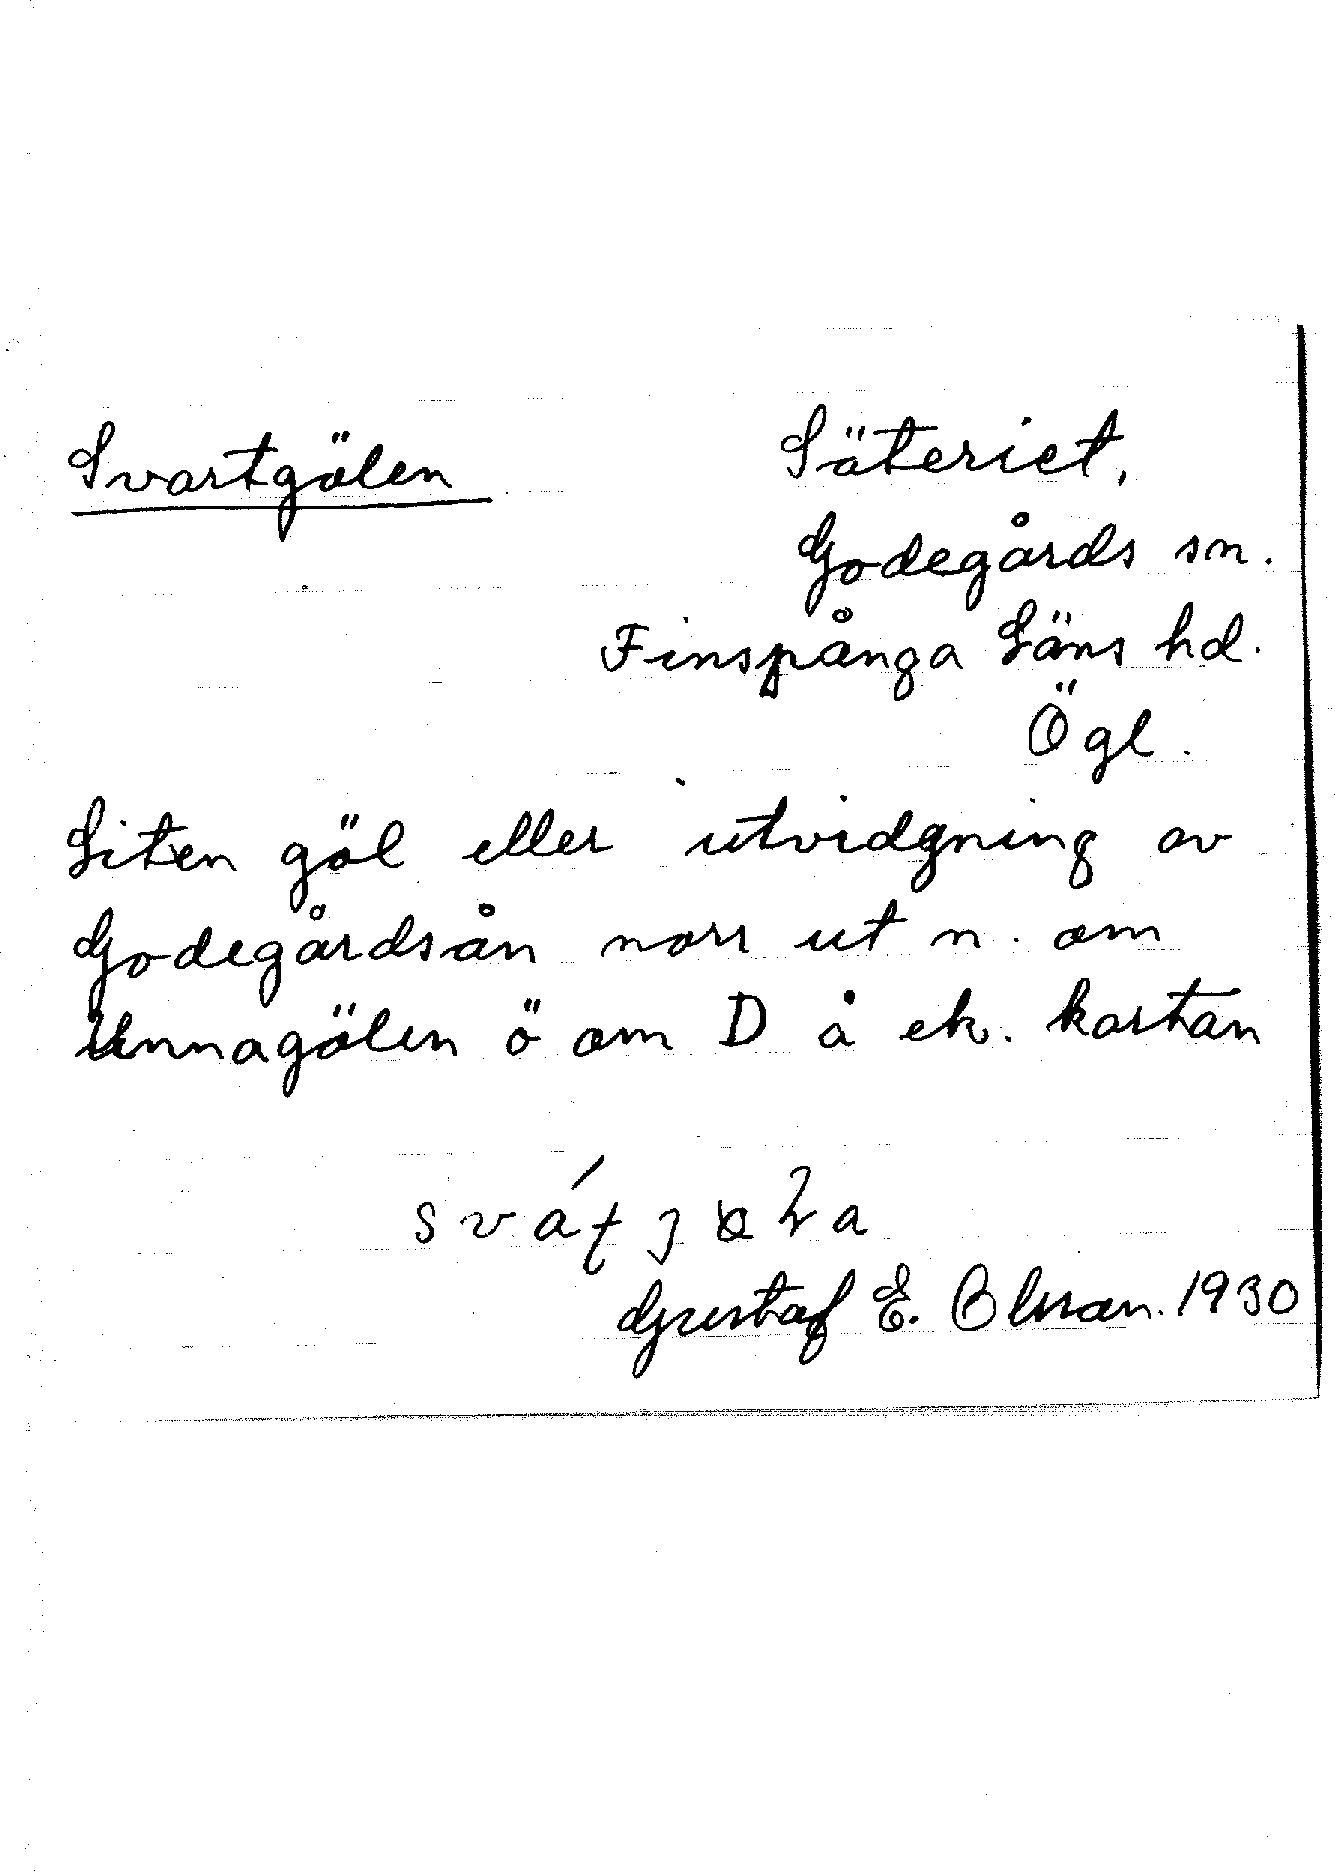 Svartgölen
Säteriet,
Godegårds sn.
Finspånga Läns hd.
Ögl.
Liten göl eller utvidgning av
Godegårdsån norr ut n. om
Unnagölen ö om D å ek. kartan
Gustaf E. Olsson. 1930